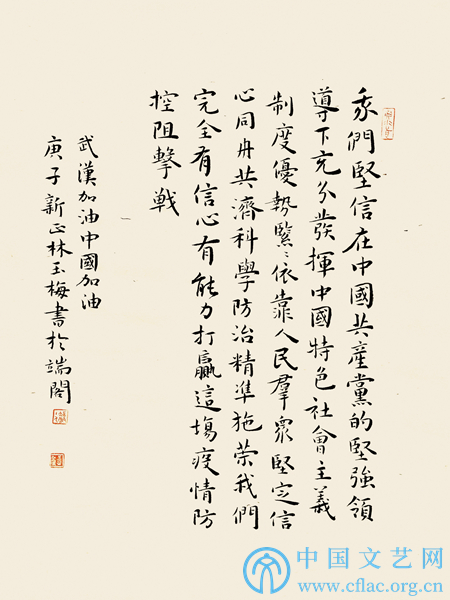 我們堅信在中國共產黨的堅強領
導下充分發揮中國特色社會主義
制度優勢緊〻依靠人民羣眾堅定信
心同舟共濟科學防治精準施荣我們
完全有信心有能力打贏這場疫情防
控阻擊戰
武漢加油中國加油
庚子新正林玉梅書於端閣
中国文艺网
www.cflac.org.cn